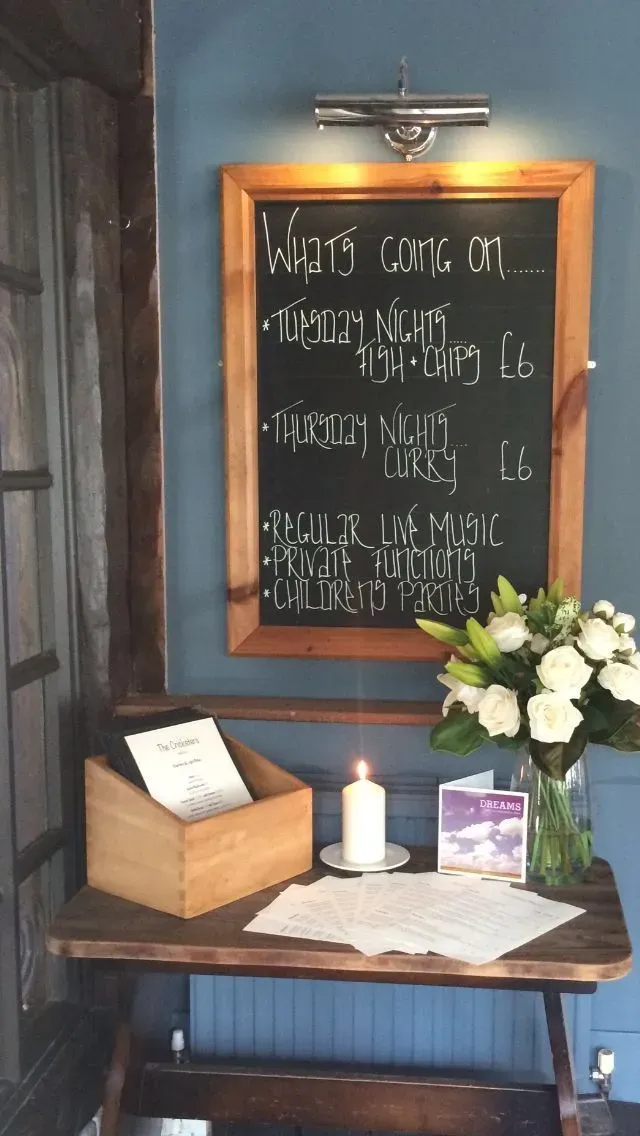 WHATS GOING ON.......
*TUESDAY NIGHTS....
FISH + CHIPS £6
*THURSDAY NIGHTS....
CURRY £6
*REGULAR LIVE MUSIC
*PRIVATE FUNCTIONS
*CHILDRENS PARTIES
The Cricketers
DREAMS